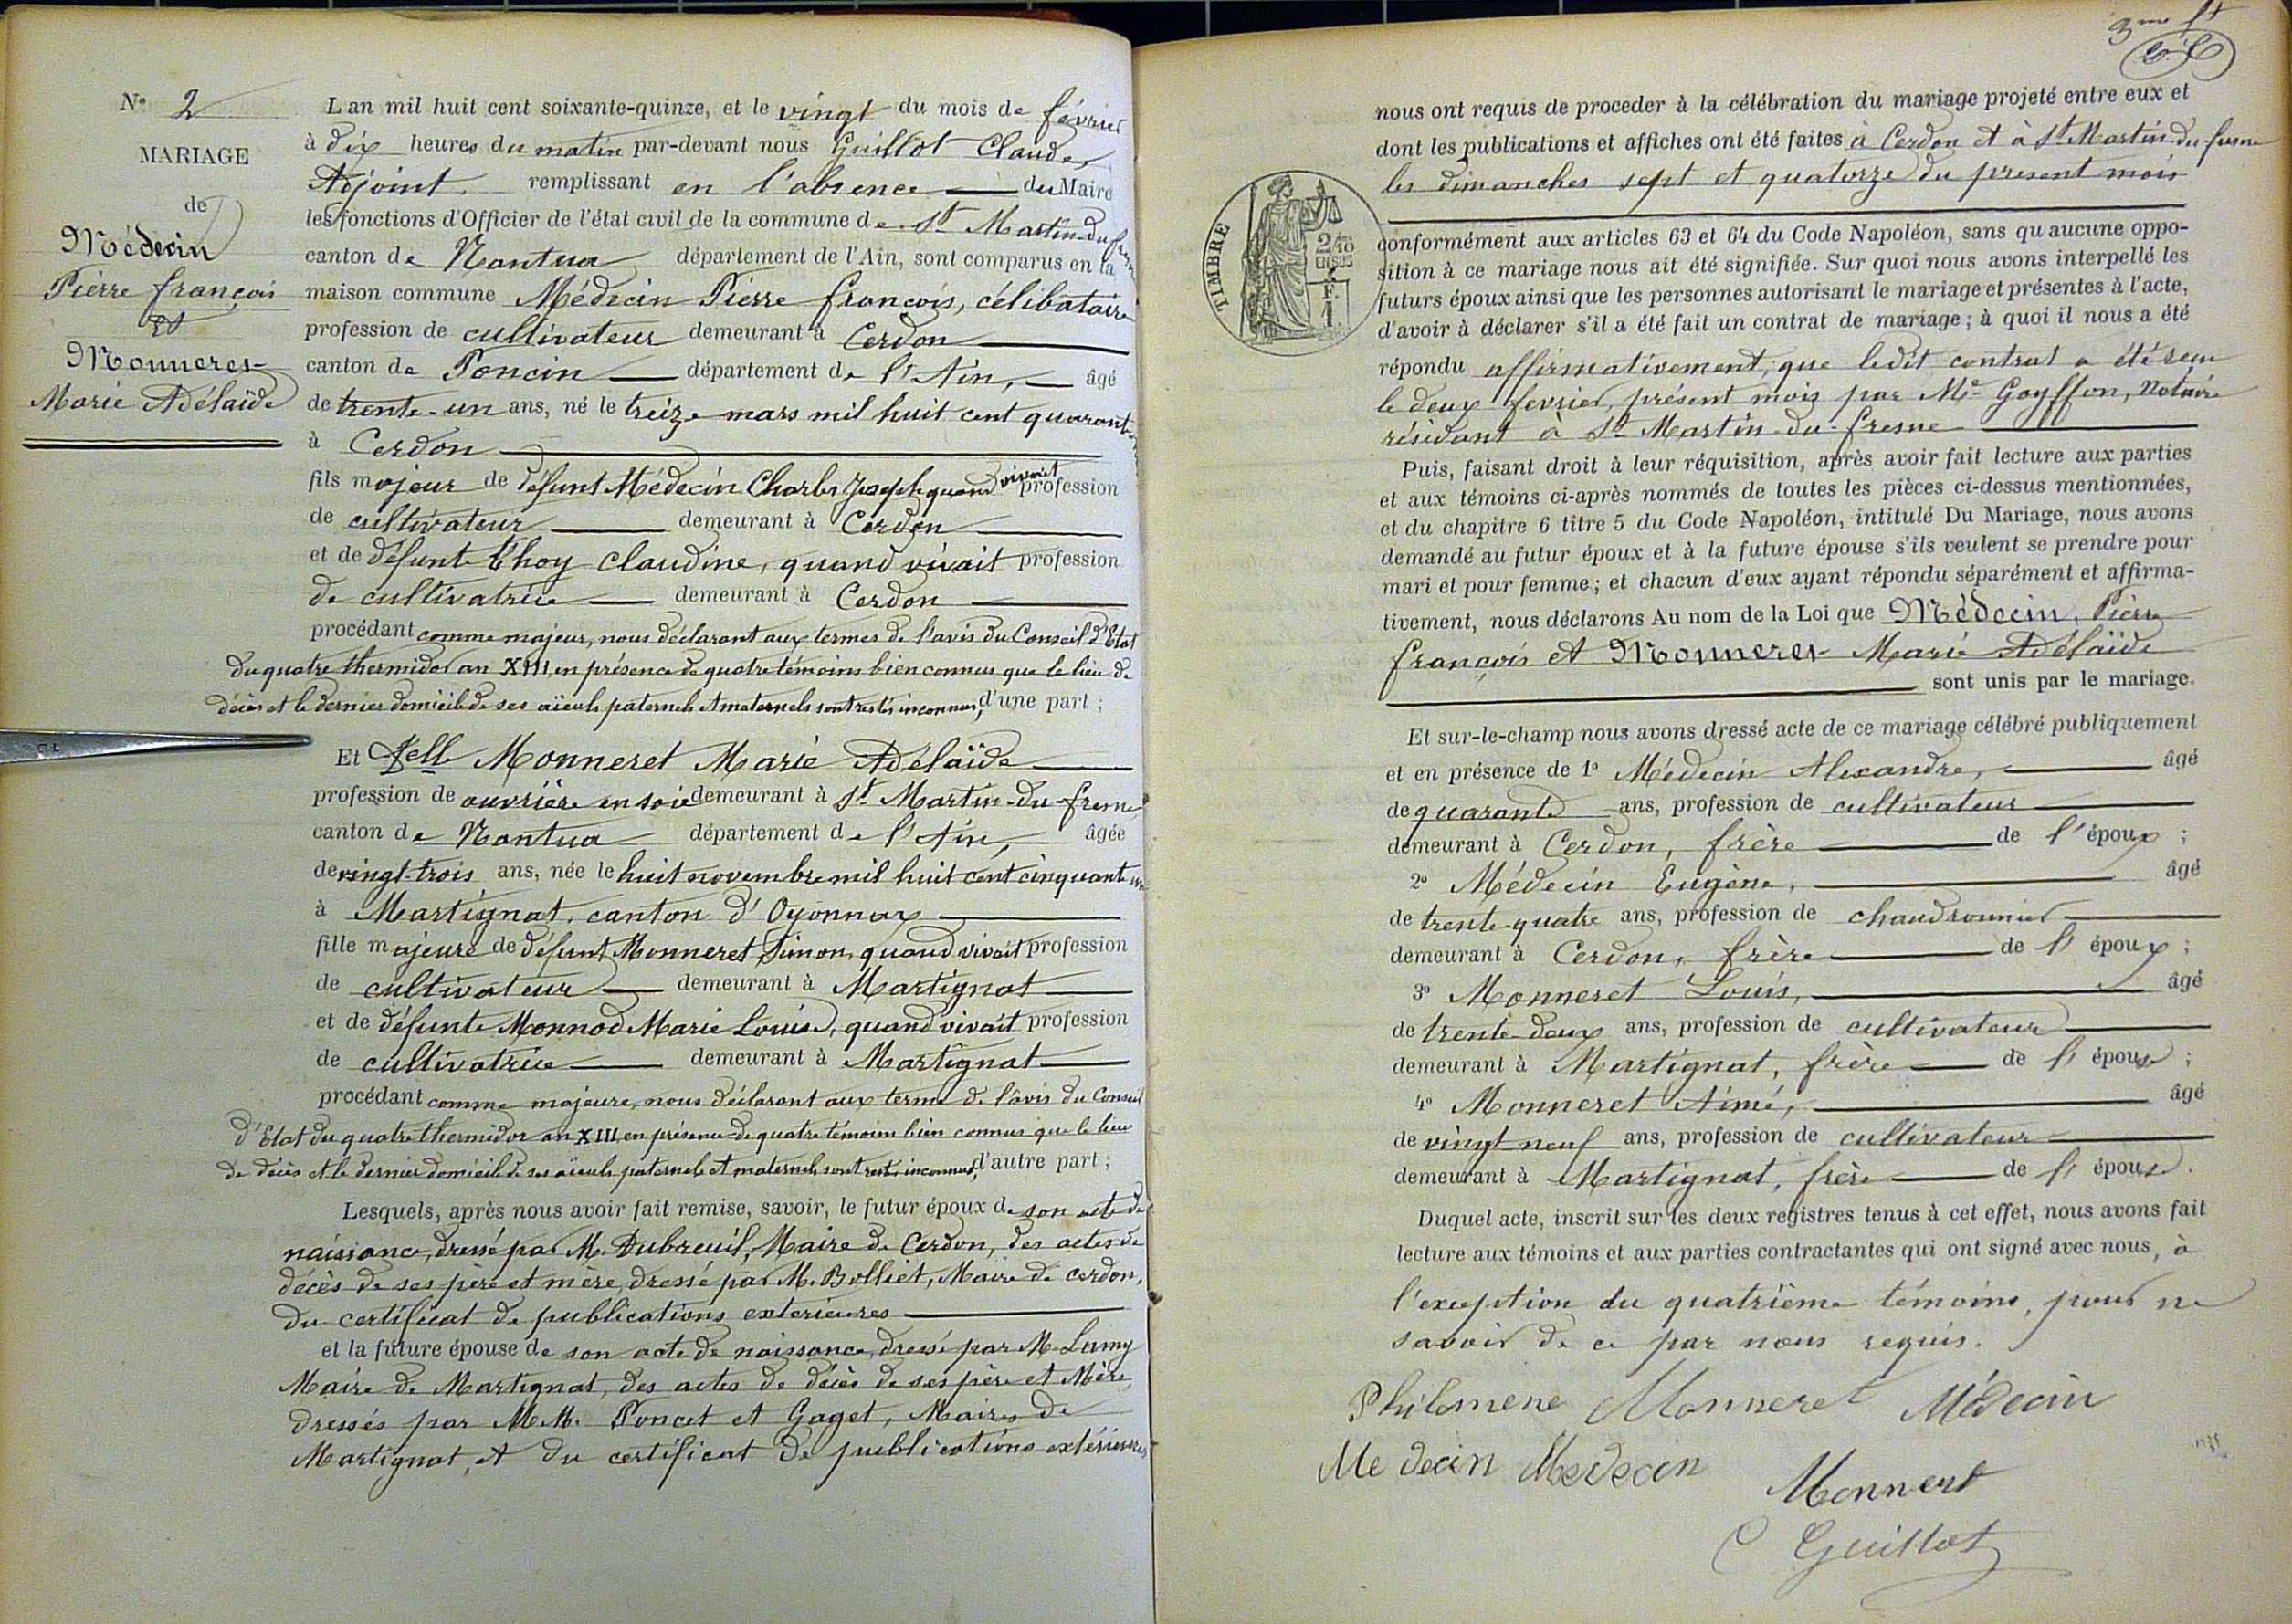 N° 2
MARIAGE
de
Médecin
Pierre françois
et
Monneret
Marie Adélaïde
L'an mil huit cent soixante-quinze, et le vingt du mois de février
à dix heures du matin par-devant nous Guillot Claude,
Adjoint remplissant en l'absence du Maire
les fonctions d'Officier de l'état civil de la commune de St Martin-du-fresne
canton de Nantua département de l'Ain, sont comparus en la
maison commune Médecin Pierre françois, célibataire
profession de cultivateur demeurant à Cerdon
canton de Poncin département de l'Ain, âgé
de trente-un ans, né le treize mars mil huit cent quarante
à Cerdon
fils majeur de défunt Médecin Charles Joseph quand vivait profession
de cultivateur demeurant à Cerdon
et de défunte Choy Claudine, quand vivait profession
de cultivatrice demeurant à Cerdon
procédant comme majeur, nous déclarant aux termes de l'avis du Conseil d'Etat
du quatre thermidor an XIII, en présence de quatre témoins bien connus que le lieu de
décès et le dernier domicile de ses aïeuls paternels et maternels sont restés inconnus, d'une part ;
Et Delle Monneret Marie Adélaïde
profession de ouvrière en soie demeurant à St Martin-du-fresne
canton de Nantua département de l'Ain, âgée
de vingt-trois ans, née le huit novembre mil huit cent cinquante un
à Martignat, canton d'Oyonnax
fille majeure de défunt Monneret Simon, quand vivait profession
de cultivateur demeurant à Martignat
et de défunte Monnod Marie Louise, quand vivait profession
de cultivatrice demeurant à Martignat
procédant comme majeure, nous déclarant aux terme de l'avis du Conseil
d'Etat du quatre thermidor an XIII, en présence de quatre témoins bien connus que le lieu
de décès et le dernier domicile de ses aïeuls paternels et maternels sont restés inconnus, d'autre part ;
Lesquels, après nous avoir fait remise, savoir, le futur époux de son acte de
naissance, dressé par M. Dubreuil, Maire de Cerdon, des actes de
décès de ses père et mère, dressé par M. Bolliet, Maire de Cerdon,
du certificat de publications exterieures
et la future épouse de son acte de naissance, dressé par M. Lamy
Maire de Martignat, des actes de décès de ses père et Mère,
dressés par MM. Poncet et Gaget, Maires de
Martignat, et du certificat de publications extérieures
3me ft
nous ont requis de proceder à la célébration du mariage projeté entre eux et
dont les publications et affiches ont été faites à Cerdon et à St Martin-du-fresne
les dimanches sept et quatorze du present mois
TIMBRE
2/10
EN SUS
conformément aux articles 63 et 64 du Code Napoléon, sans qu'aucune oppo-
sition à ce mariage nous ait été signifiée. Sur quoi nous avons interpellé les
futurs époux ainsi que les personnes autorisant le mariage et présentes à l'acte,
d'avoir à déclarer s'il a été fait un contrat de mariage ; à quoi il nous a été
répondu affirmativement, que ledit contrat a été reçu
le deux fevrier, présent mois par Me Goyffon, Notaire
résidant à St Martin-du-fresne
Puis, faisant droit à leur réquisition, après avoir fait lecture aux parties
et aux témoins ci-après nommés de toutes les pièces ci-dessus mentionnées,
et du chapitre 6 titre 5 du Code Napoléon, intitulé Du Mariage, nous avons
demandé au futur époux et à la future épouse s'ils veulent se prendre pour
mari et pour femme ; et chacun d'eux ayant répondu séparément et affirma-
tivement, nous déclarons Au nom de la Loi que Médecin, Pierre
françois et Monneret Marie Adélaïde
sont unis par le mariage.
Et sur-le-champ nous avons dressé acte de ce mariage célébré publiquement
et en présence de 1° Médecin Alexandre, âgé
de quarante ans, profession de cultivateur
demeurant à Cerdon, frère de l'époux ;
2° Médecin Eugène, âgé
de trente-quatre ans, profession de chaudronnier
demeurant à Cerdon, frère de l'époux ;
3° Monneret Louis, âgé
de trente-deux ans, profession de cultivateur
demeurant à Martignat, frère de l'épouse ;
4° Monneret Aimé, âgé
de vingt neuf ans, profession de cultivateur
demeurant à Martignat, frère de l'épouse.
Duquel acte, inscrit sur les deux registres tenus à cet effet, nous avons fait
lecture aux témoins et aux parties contractantes qui ont signé avec nous, à
l'exception du quatrième témoins, pour ne
savoir de ce par nous requis.
Philomene Monneret Médecin
Me decin Medecin
Monneret
C Guillot